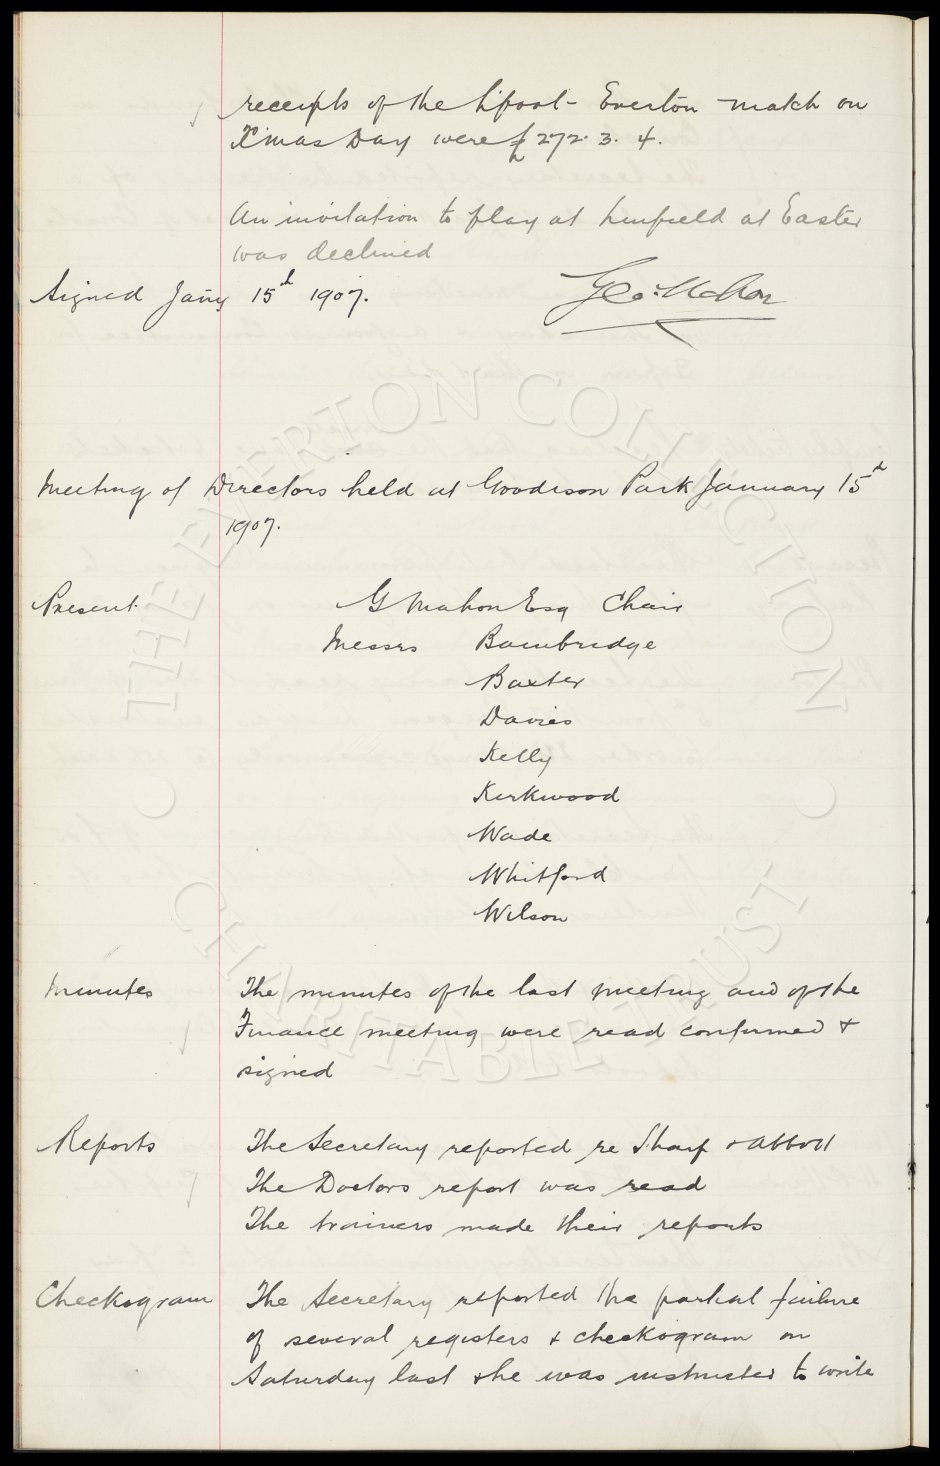 receipts of the L'pool - Everton match on
X'mas Day were £272. 3. 4.
An invitation to play at Linfield at Easter
was declined
Signed Jany 15th 1907.
Geo: Mahon
Meeting of Directors held at Goodison Park January 15th
1907.
Present. G Mahon Esq Chair
Messrs Bainbridge
Baxter
Davies
Kelly
Kirkwood
Wade
Whitford
Wilson
Minutes The minutes of the last meeting and of the
Finance meeting were read confirmed +
signed
Reports The Secretary reported re Sharp + Abbott
The Doctors report was read
The trainers made their reports
Checkogram The Secretary reported the partial failure
of several registers + checkogram on
Saturday last + he was instructed to write
THE EVERTON COLLECTION
CHARITABLE TRUST